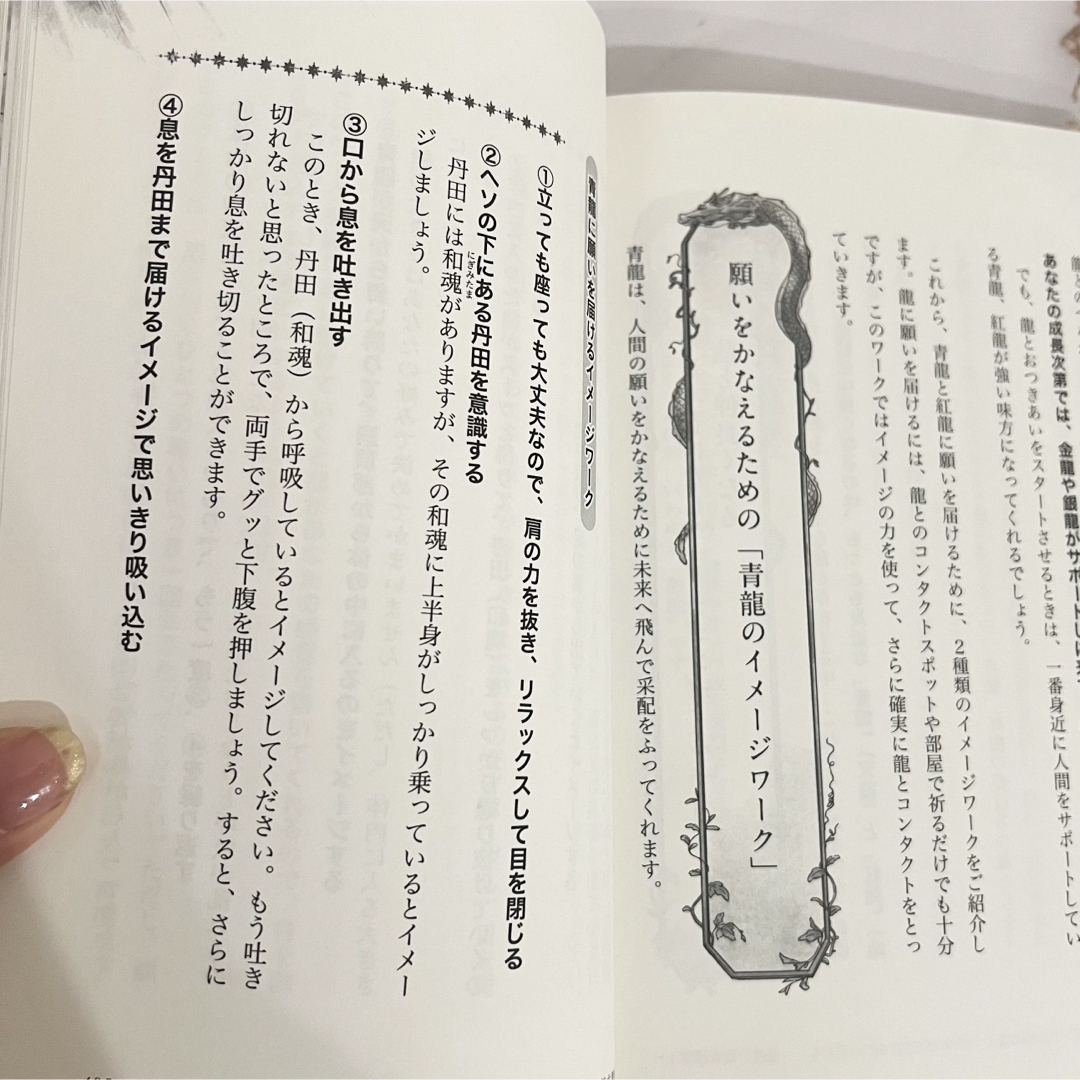 あなたの成長次第では、金龍や銀龍がサポートし
でも、龍とおつきあいをスタートさせるときは、一番身近に人間をサポートしてい
る青龍、紅龍が強い味方になってくれるでしょう。
これから、青龍と紅龍に願いを届けるために、2種類のイメージワークをご紹介し
ます。龍に願いを届けるには、龍とのコンタクトスポットや部屋で祈るだけでも十分
ですが、このワークではイメージの力を使って、さらに確実に龍とコンタクトをとっ
ていきます。
願いをかなえるための「青龍のイメージワーク」
青龍は、人間の願いをかなえるために未来へ飛んで采配をふってくれます。
青龍に願いを届けるイメージワーク
①立っても座っても大丈夫なので、肩の力を抜き、リラックスして目を閉じる
②ヘソの下にある丹田を意識する
丹田には和魂がありますが、その和魂に上半身がしっかり乗っているとイメー
にぎみたま
ジしましょう。
③口から息を吐き出す
このとき、丹田（和魂）から呼吸しているとイメージしてください。もう吐き
切れないと思ったところで、両手でグッと下腹を押しましょう。すると、さらに
しっかり息を吐き切ることができます。
④息を丹田まで届けるイメージで思いきり吸い込む